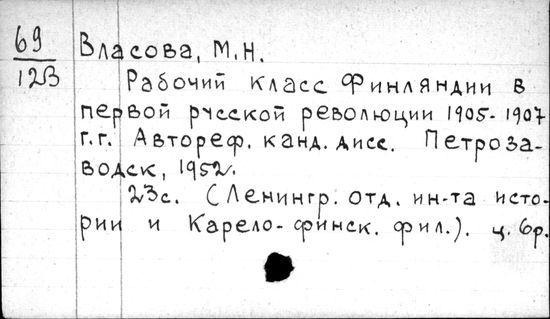 69 Власова, М.Н.
12В Рабочий класс Финляндии в
первой русской революции 1905-1907
г.г. Автореф. канд. дисс. Петроза-
водск, 1952.
23с. (Ленингр. отд. ин-та исто-
рии и Карело-финск. фил.). ц. бр.